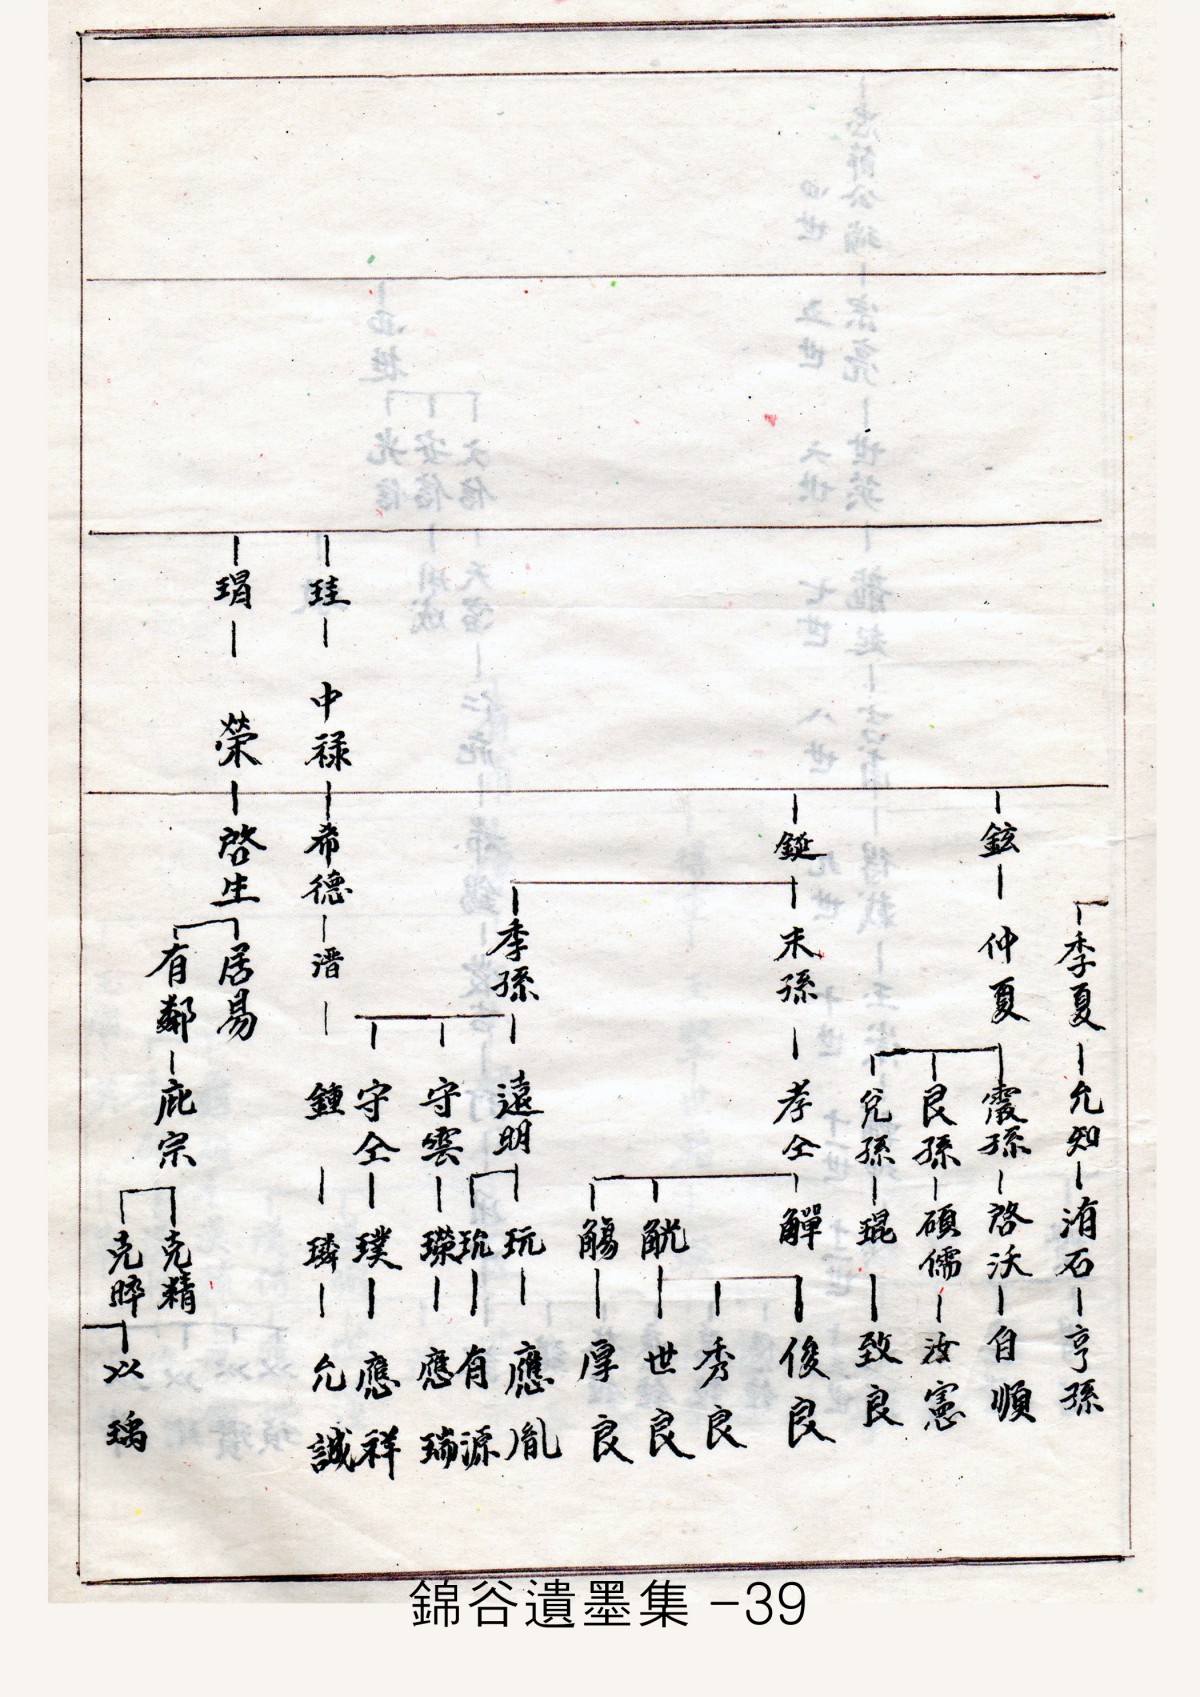 季夏 允知 洧石 亨孫
鉉 仲夏 霞孫 啓沃 自順
艮孫 碩儒 汝憲
兌孫 琨 致良
鋋 末孫 孝仝 觶 俊良
秀良
觥 世良
觴 厚良
季孫 遠明 玩 應胤
有源
守雲 瑮 應瑞
守仝 璞 應祥
珪 中禄 希德 潛 鍾 璘 允誠
琄 榮 啓生 居易
有鄰 庇宗 克精
克晬 以瑀
錦谷遺墨集 -39